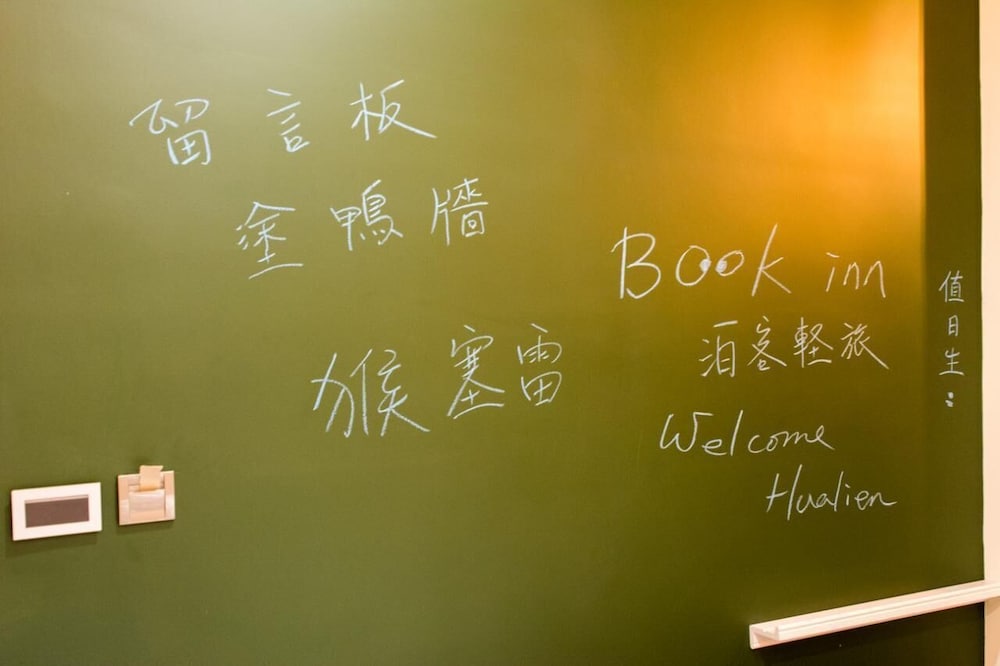 留言板
塗鴨牆
猴塞雷
Book inn
泊客軽旅
Welcome
Hualien
值日生：